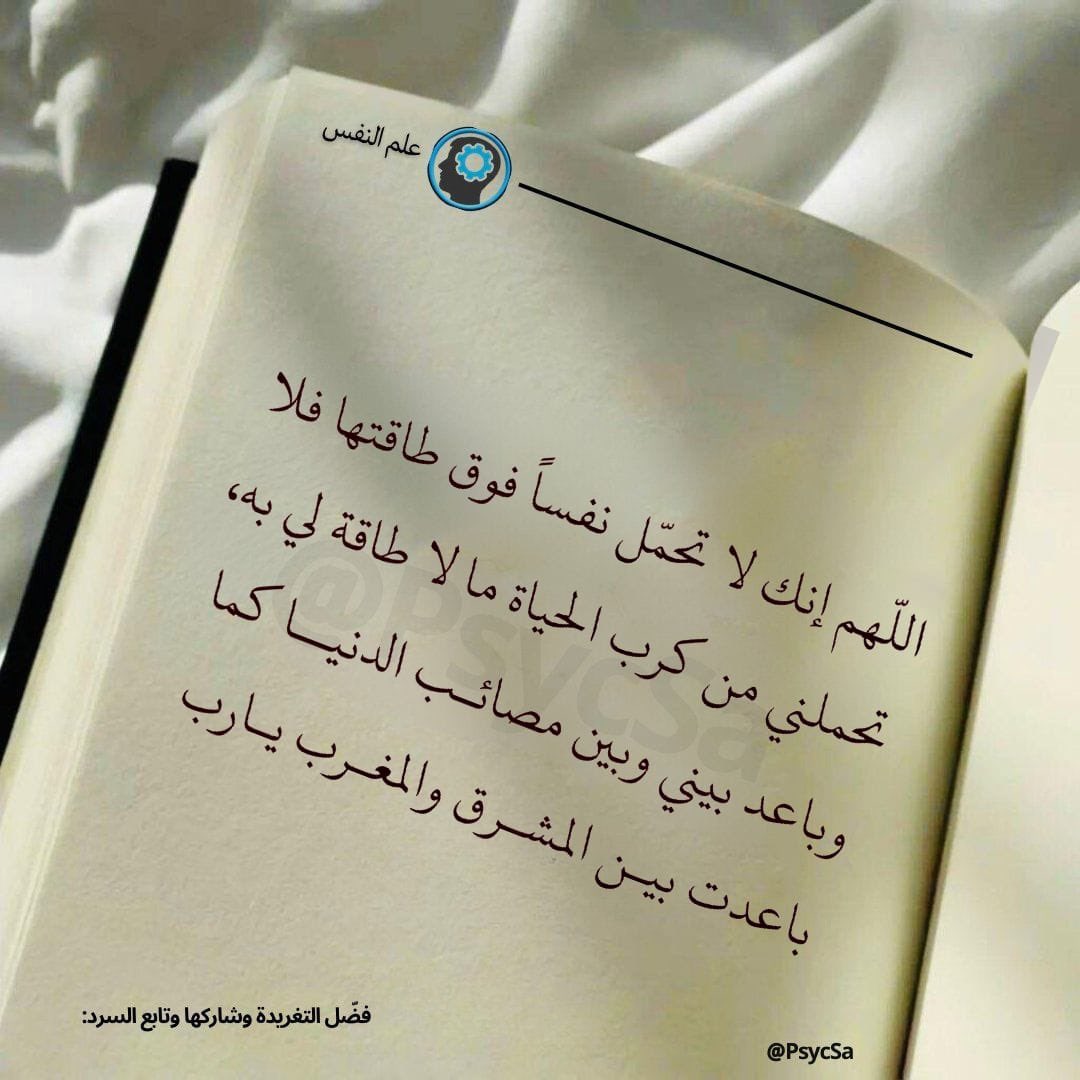 علم النفس
اللّهم إنك لا تحمّل نفساً فوق طاقتها فلا
تحملني من كرب الحياة ما لا طاقة لي به،
وباعد بيني وبين مصائب الدنيا كما
باعدت بين المشرق والمغرب يارب
@PsycSa
فضّل التغريدة وشاركها وتابع السرد:
@PsycSa